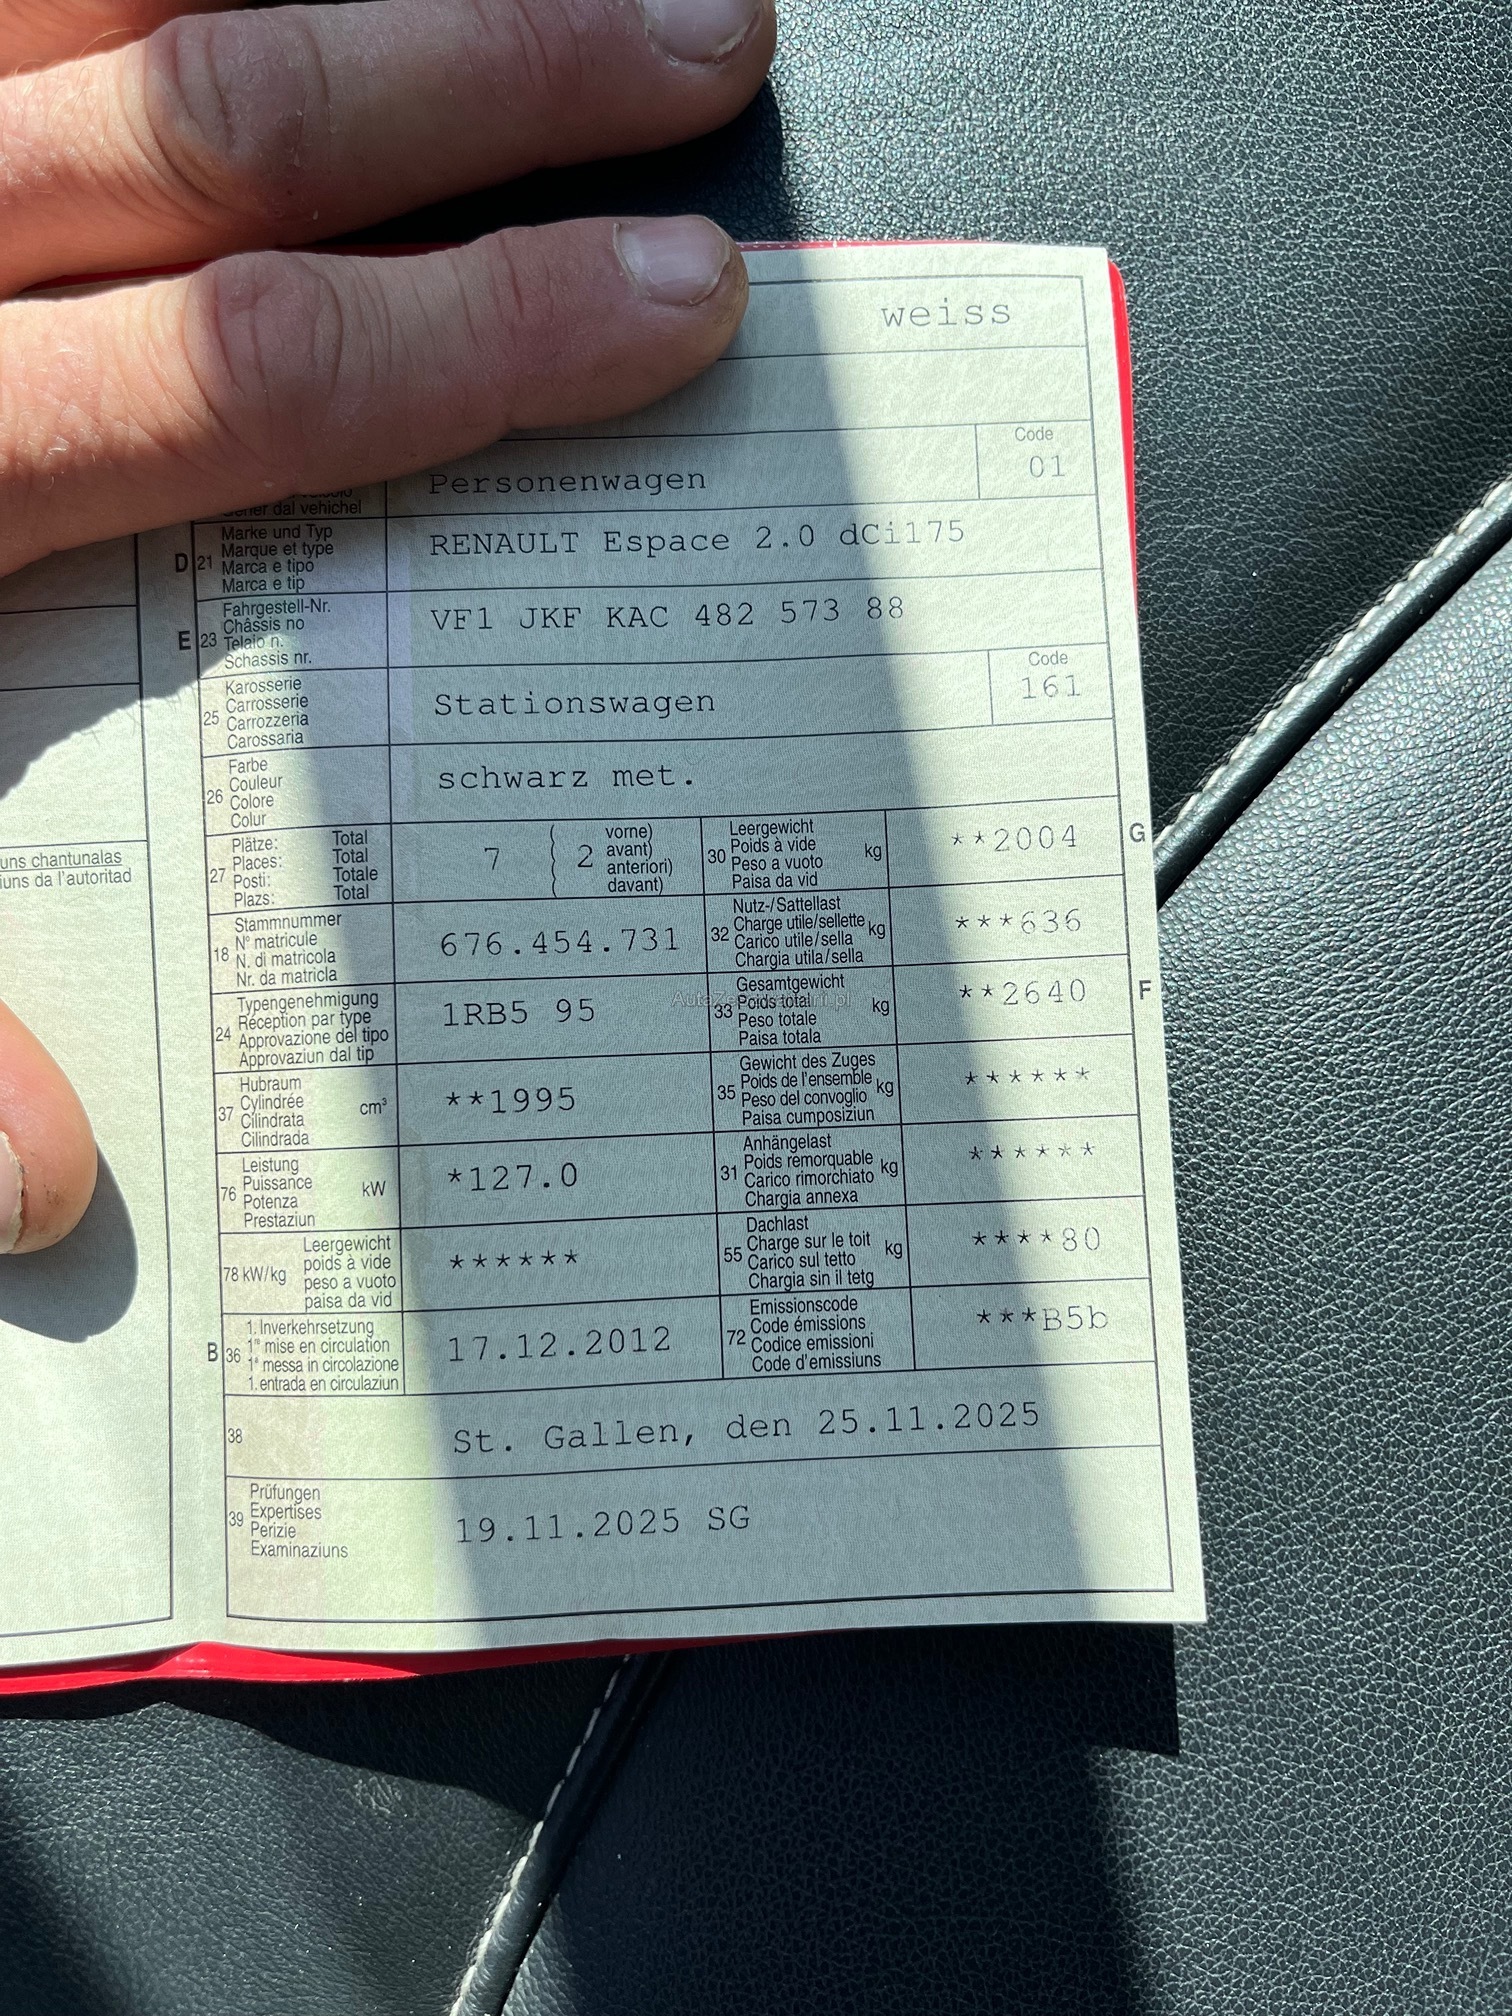 weiss
Code
01
Personenwagen
dal vehichel
D 21 Marke und Typ
Marque et type
Marca e tipo
Marca e tip
RENAULT Espace 2.0 dCi175
E 23 Fahrgestell-Nr.
Châssis no
Telaio n.
Schassis nr.
VF1 JKF KAC 482 573 88
25 Karosserie
Carrosserie
Carrozzeria
Carossaria
Stationswagen
Code
161
26 Farbe
Couleur
Colore
Colur
schwarz met.
27 Plätze: Total
Places: Total
Posti: Totale
Plazs: Total
7 ( 2 vorne)
avant)
anteriori)
davant)
30 Leergewicht
Poids à vide
Peso a vuoto
Paisa da vid
kg
**2004
G
uns chantunalas
iuns da l'autoritad
18 Stammnummer
N° matricule
N. di matricola
Nr. da matricla
676.454.731
32 Nutz-/Sattellast
Charge utile/sellette
Carico utile/sella
Chargia utila/sella
kg
***636
24 Typengenehmigung
Réception par type
Approvazione del tipo
Approvaziun dal tip
1RB5 95
33 Gesamtgewicht
Poids total
Peso totale
Paisa totala
kg
**2640
F
37 Hubraum
Cylindrée
Cilindrata
Cilindrada
cm³
**1995
35 Gewicht des Zuges
Poids de l'ensemble
Peso del convoglio
Paisa cumposiziun
kg
******
76 Leistung
Puissance
Potenza
Prestaziun
kW
*127.0
31 Anhängelast
Poids remorquable
Carico rimorchiato
Chargia annexa
kg
******
78 kW/kg
Leergewicht
poids à vide
peso a vuoto
paisa da vid
******
55 Dachlast
Charge sur le toit
Carico sul tetto
Chargia sin il tetg
kg
****80
B 36 1. Inverkehrsetzung
1re mise en circulation
1a messa in circolazione
1. entrada en circulaziun
17.12.2012
72 Emissionscode
Code émissions
Codice emissioni
Code d'emissiuns
***B5b
38
St. Gallen, den 25.11.2025
39 Prüfungen
Expertises
Perizie
Examinaziuns
19.11.2025 SG